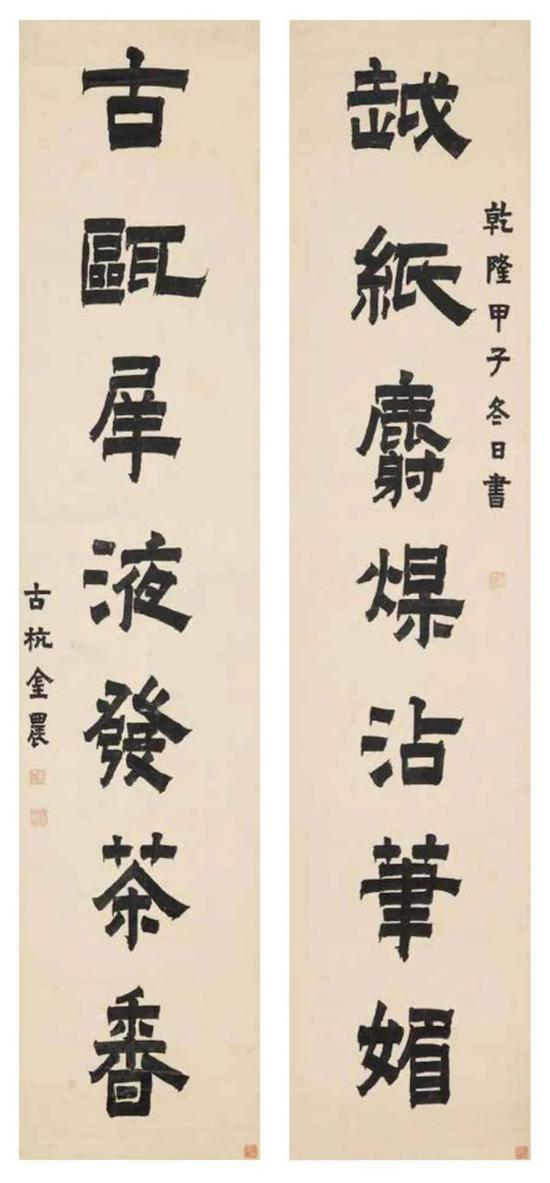 乾隆甲子冬日書
越紙麝煤沾筆媚
古甌犀液發茶香
古杭金農